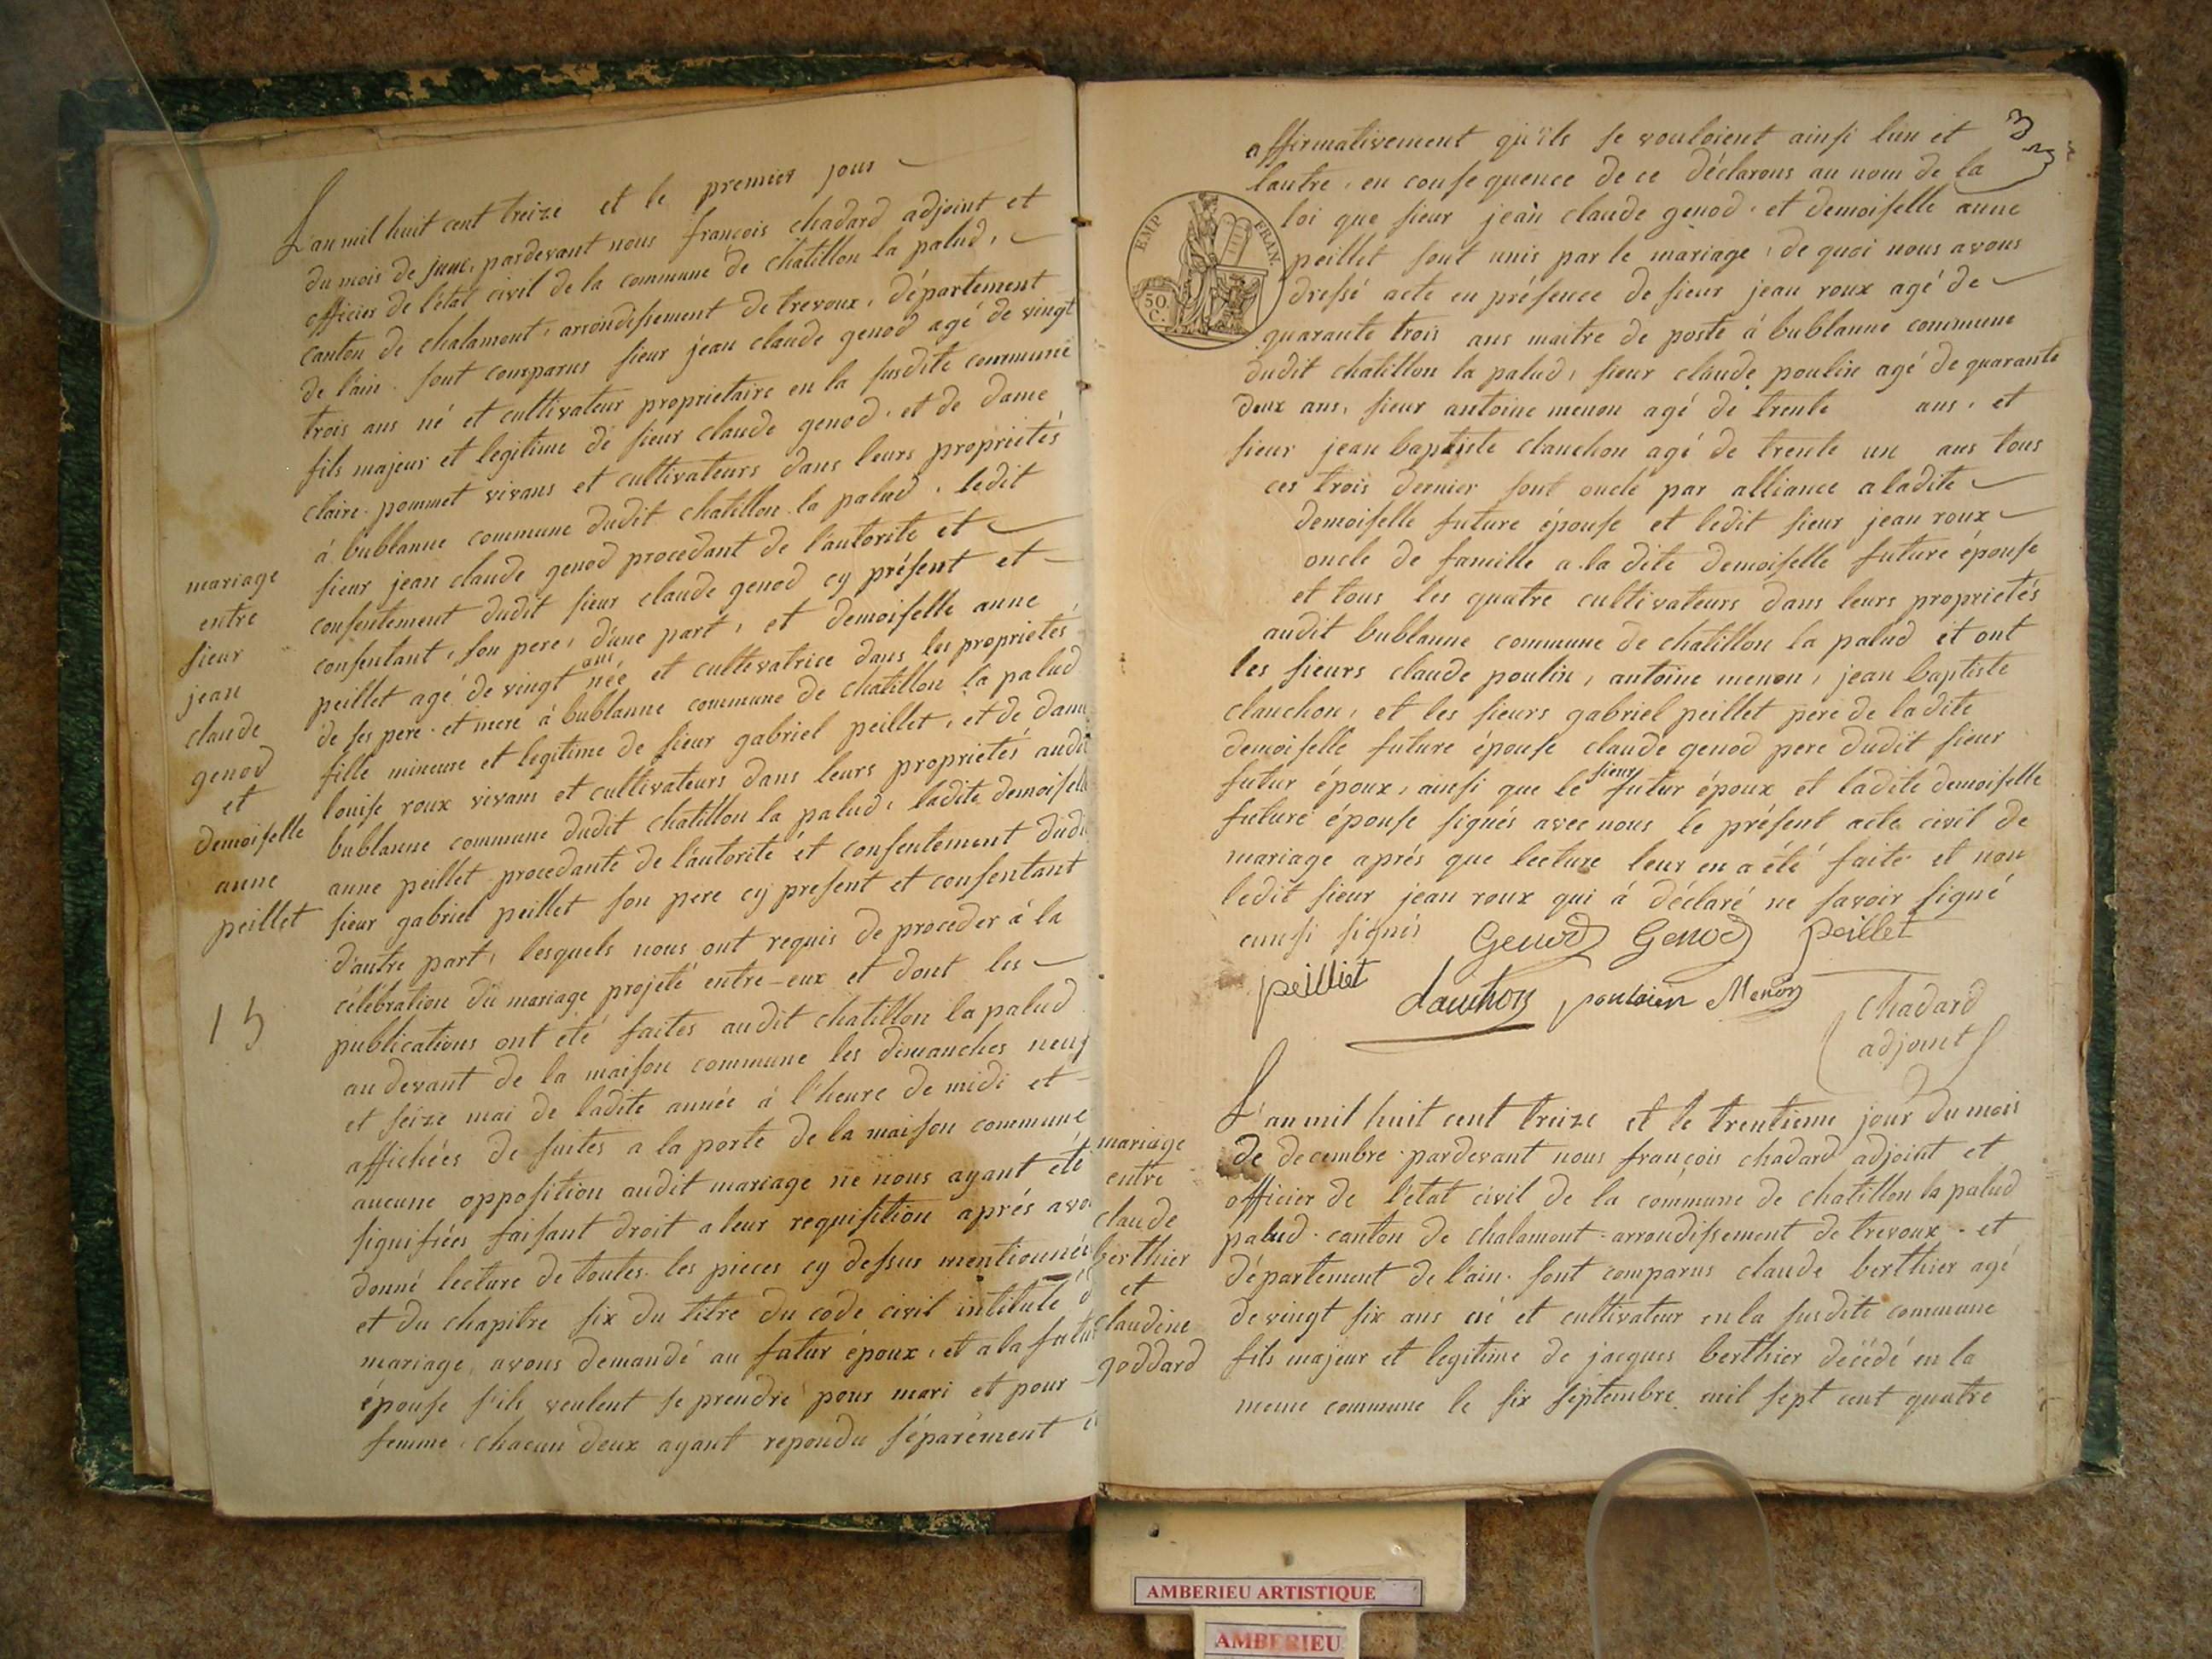 L'an mil huit cent treize et le premier jour
du mois de juin, pardevant nous francois chadard adjoint et
officier de l'état civil de la commune de chatillon la palud,
canton de chalamont, arrondissement de trevoux, département
de l'ain. sont comparus sieur jean claude genod agé de vingt
trois ans né et cultivateur proprietaire en la susdite commune
fils majeur et legitime de sieur claude genod, et de dame
claire pommet vivans et cultivateurs dans leurs proprietés
à bublanne commune dudit chatillon la palud. ledit
sieur jean claude genod procedant de l'autorite et
consentement dudit sieur claude genod cy présent et
consentant, son pere, d'une part, et demoiselle anne
peillet agé de vingt ans née et cultivatrice dans les proprietés
de ses pere et mere à bublanne commune de chatillon la palud
fille mineure et legitime de sieur gabriel peillet, et de dame
louise roux vivans et cultivateurs dans leurs proprietés audit
bublanne commune dudit chatillon la palud, ladite demoiselle
anne peillet procedante de l'autorité et consentement dudi
sieur gabriel peillet son pere cy present et consentant
d'autre part, lesquels nous ont requis de proceder à la
célébration du mariage projeté entre-eux et dont les
publications ont été faites audit chatillon la palud
au devant de la maison commune les dimanches neuf
et seize mai de ladite année à l'heure de midi et
affichées de suites a la porte de la maison commune
aucune opposition audit mariage ne nous ayant été
signifiées faisant droit a leur requisition aprés avo
donné lecture de toutes les pieces cy dessus mentionnées
et du chapitre six du titre du code civil intitulé d
mariage, avons demandé au futur époux, et a la futu
épouse s'ils veulent se prendre pour mari et pour
femme, chacun deux ayant repondu séparément e
mariage
entre
sieur
jean
claude
genod
et
demoiselle
anne
peillet
15
affirmativement qu'ils se vouloient ainsi lun et
lautre, en consequence de ce déclarons au nom de la
loi que sieur jean claude genod et demoiselle anne
peillet sont unis par le mariage, de quoi nous avons
dressé acte en présence de sieur jean roux agé de
quarante trois ans maitre de poste à bublanne commune
dudit chatillon la palud, sieur claude poulin agé de quarante
deux ans, sieur antoine menon agé de trente ans, et
sieur jean baptiste clanchon agé de trente un ans tous
ces trois dernier sont oncle par alliance a ladite
demoiselle future épouse et ledit sieur jean roux
oncle de famille a la dite demoiselle future épouse
et tous les quatre cultivateurs dans leurs proprietés
audit bublanne commune de chatillon la palud et ont
les sieurs claude poulin, antoine menon, jean baptiste
clanchon, et les sieurs gabriel peillet pere de ladite
demoiselle future épouse claude genod pere dudit sieur
futur époux, ainsi que le sieur futur époux et ladite demoiselle
future épouse signés avec nous le présent acte civil de
mariage aprés que lecture leur en a été faite et non
ledit sieur jean roux qui à déclaré ne savoir signé
ainsi signés Genod Genod peillet
peilliet clanchon poulain Menon
chadard
adjoint
EMP. FRAN.
50
C.
L'an mil huit cent treize et le trentieme jour du mois
de decembre pardevant nous françois chadard adjoint et
officier de l'état civil de la commune de chatillon la palud
palud canton de chalamont arrondissement de trevoux et
département de l'ain. sont comparus claude berthier agé
de vingt six ans né et cultivateur en la susdite commune
fils majeur et legitime de jacques berthier décédé en la
meme commune le six septembre mil sept cent quatre
mariage
entre
claude
berthier
et
claudine
goddard
AMBERIEU ARTISTIQUE
AMBERIEU